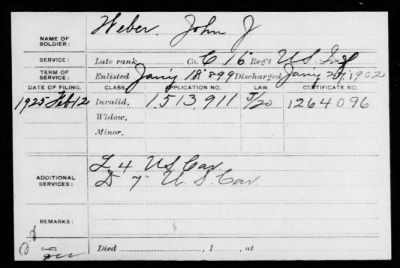 NAME OF SOLDIER: Weber, John J
SERVICE: Late rank, Co. C 16 Reg't U.S. Inf
TERM OF SERVICE: Enlisted Jan'y 18 1899 Discharged Jan'y 1902
DATE OF FILING. CLASS. APPLICATION NO. LAW. CERTIFICATE NO.
1925 Feb 12 Invalid, 1513911 5/20 1264096
Widow,
Minor,
L 4 U.S. Cav.
ADDITIONAL SERVICES: D 7" U.S. Cav
REMARKS:
Died , 1 , at